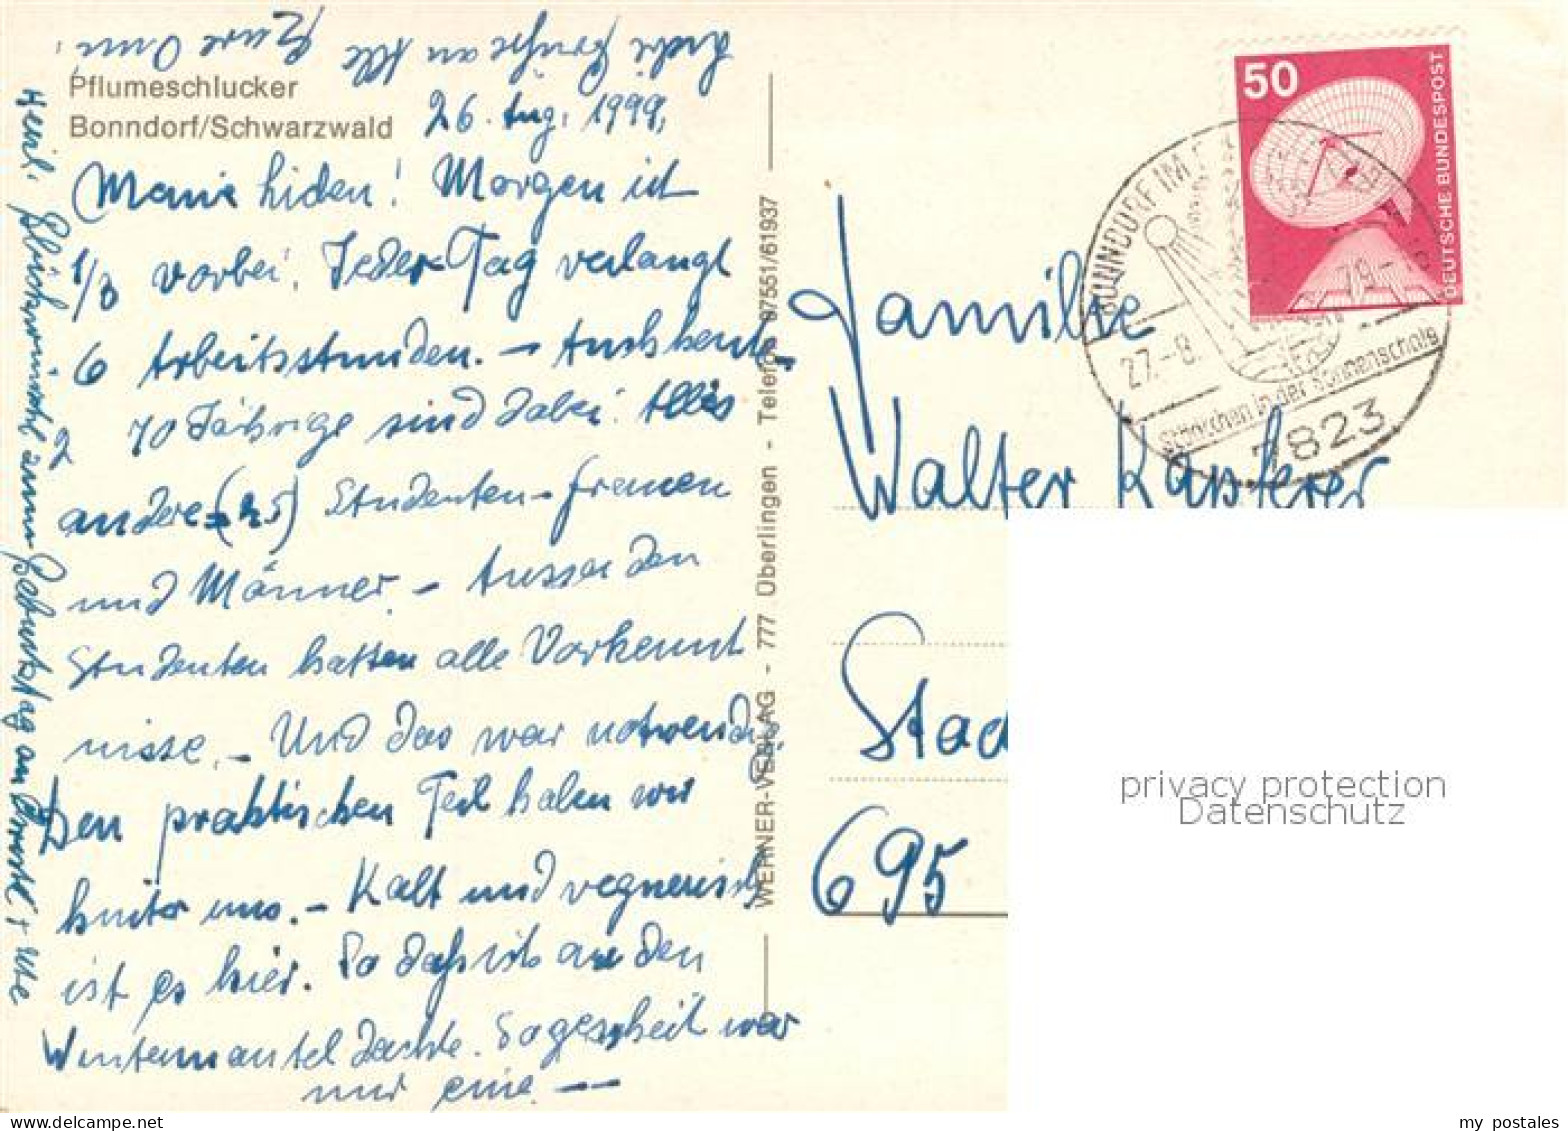 Liebe Grüße an Alle Eure Omi
Pflumeschlucker
Bonndorf/Schwarzwald
26. Aug. 1999,
Meine lieben! Morgen ist
1/3 vorbei. Jeder Tag verlangt
6 Arbeitsstunden. – Auch heute
2 70 Jährige sind dabei. Alles
andere (25) Studenten – Frauen
und Männer. – Ausser den
Studenten hatten alle Vorkennt
nisse. – Und das war notwendig.
Den praktischen Teil haben wir
hinter uns. – Kalt und regnerisch
ist es hier. So daß ich an den
Wintermantel dachte. Sogescheit war
nur eine. ––
Herzl. Glückwünsche zum Geburtstag an + Ute
WERNER-VERLAG - 777 Überlingen - Telefon 07551/61937
50
DEUTSCHE BUNDESPOST
BONNDORF IM
27.-8. 79-
in der Sonnenschein
7823
Familie
Walter Kapferer
Stad
695
privacy protection
Datenschutz
www.delcampe.net
my_postales